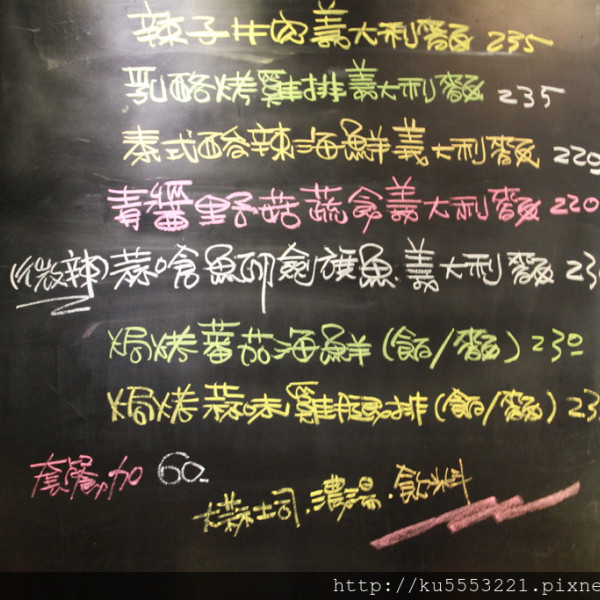 辣子牛肉義大利麵 235
乳酪烤雞排義大利麵 235
泰式酸辣海鮮義大利麵 220
青醬野菇蔬食義大利麵 220
(微辣)蒜嗆魚卵旗魚義大利麵 23
焗烤蕃茄海鮮(飯/麵) 230
焗烤蒜味雞腿排(飯/麵) 23
套餐加 60.
大蒜土司.濃湯.飲料
http://ku5553221.pixne